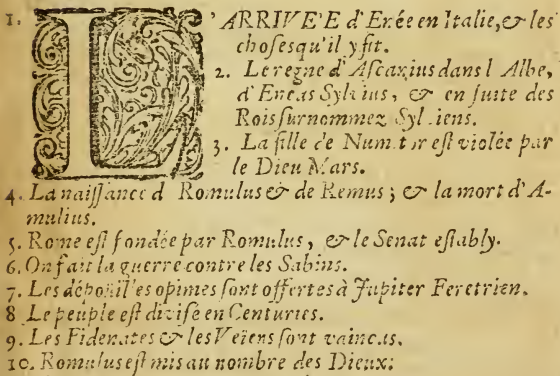 1. L'ARRIVE'E d'Enée en Italie, & les
choses qu'il y fit.
2. Le regne d'Ascanius dans l Albe,
d'Eneas Sylvius, & en suite des
Rois surnommez Sylviens.
3. La fille de Numitor est violée par
le Dieu Mars.
4. La naissance d Romulus & de Remus ; & la mort d'A-
mulius.
5. Rome est fondée par Romulus, & le Senat estably.
6. On fait la guerre contre les Sabins.
7. Les dépoüilles opimes sont offertes à Jupiter Feretrien.
8 Le peuple est divisé en Centuries.
9. Les Fidenates & les Veiens sont vaincus.
10. Romulus est mis au nombre des Dieux: